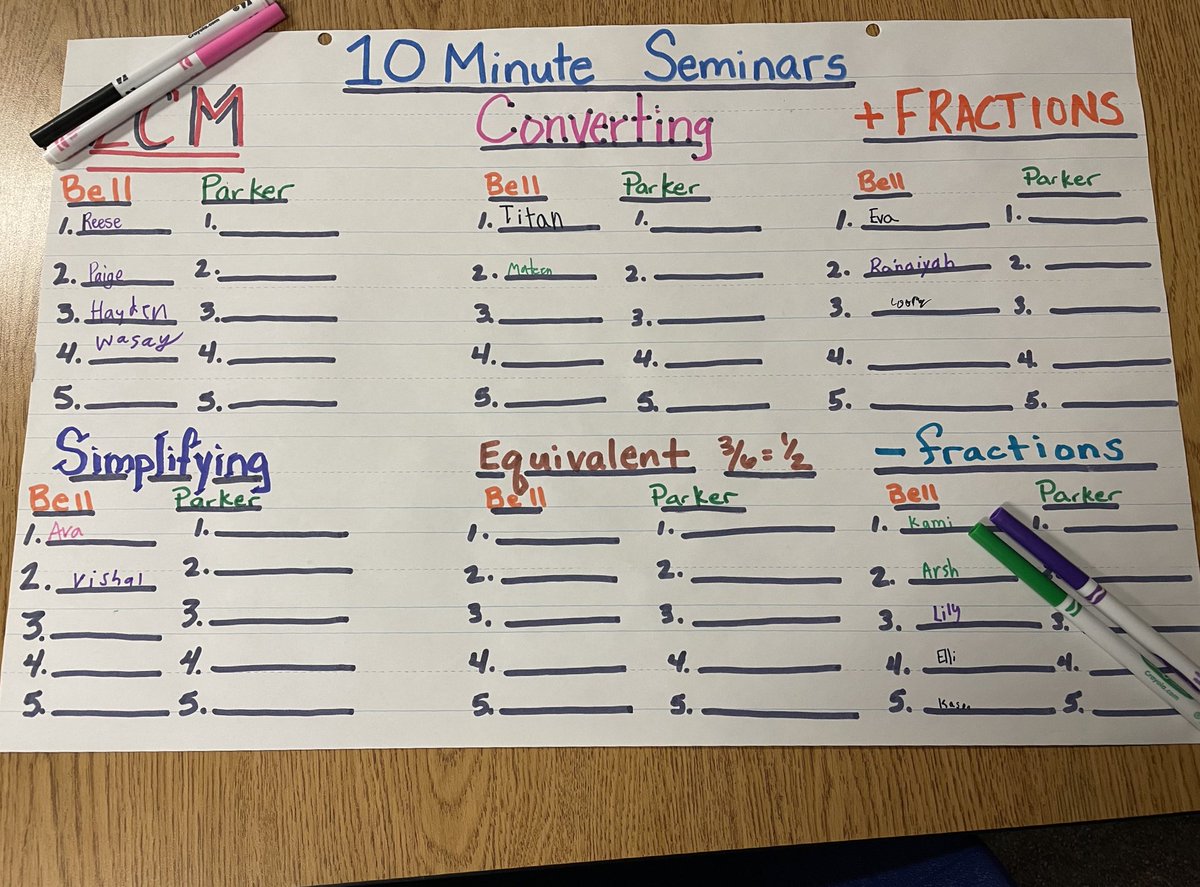 10 Minute Seminars
LCM
Bell Parker
1. Reese 1.
2. Paige 2.
3. Hayden 3.
4. Wasay 4.
5. 5.
Converting
Bell Parker
1. Titan 1.
2. 2.
3. 3.
4. 4.
5. 5.
+ FRACTIONS
Bell Parker
1. Eva 1.
2. Ranaiyah 2.
3. 3.
4. 4.
5. 5.
Simplifying
Bell Parker
1. Ava 1.
2. Vishal 2.
3. 3.
4. 4.
5. 5.
Equivalent 3/6 = 1/2
Bell Parker
1. 1.
2. 2.
3. 3.
4. 4.
5. 5.
- fractions
Bell Parker
1. Kami 1.
2. Arsh
3. Lily 3.
4. Elli 4.
5. 5.
Crayola.com